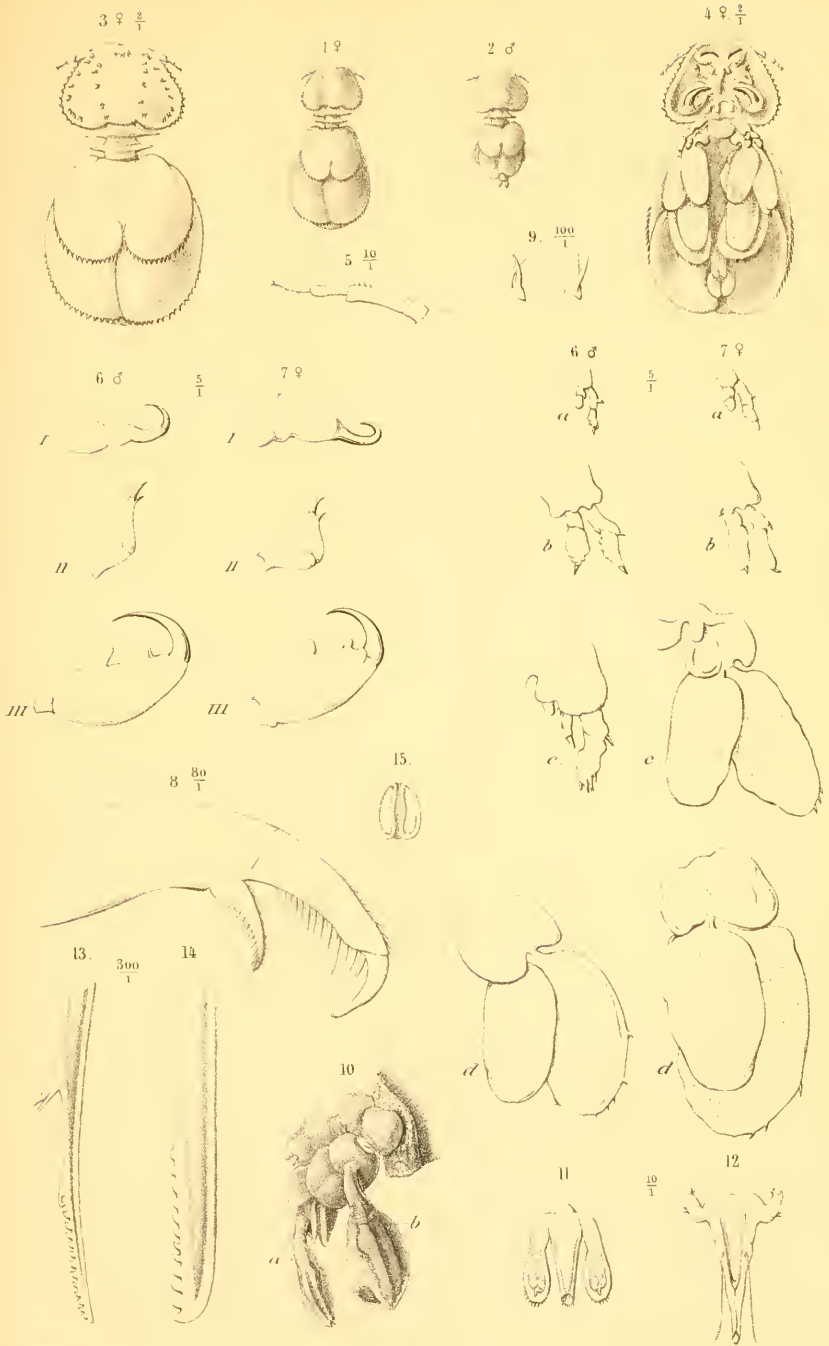 3 ♀ 2/1
1 ♀
2 ♂
4 ♀. 2/1
5 10/1
9. 100/1
6 ♂ 5/1 7 ♀
6 ♂ 5/1 7 ♀
I I
a a
II II
b b
III III
c. c
8 80/1
15.
13. 300/1 14
d d
10
a b
11 10/1 12